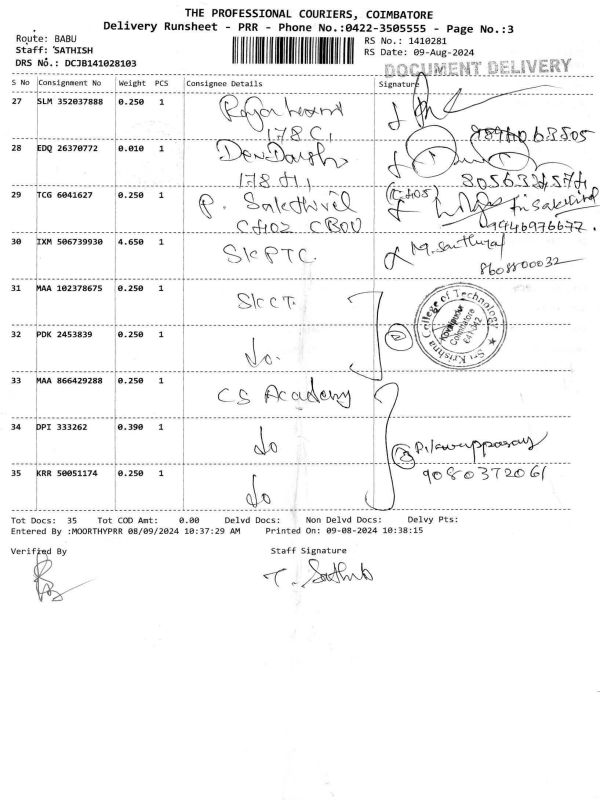 THE PROFESSIONAL COURIERS, COIMBATORE
Delivery Runsheet - PRR - Phone No.:0422-3505555 - Page No.:3
Route: BABU
RS No.: 1410281
Staff: SATHISH
RS Date: 09-Aug-2024
DRS No.: DCJB141028103
DOCUMENT DELIVERY
S No Consignment No Weight PCS Consignee Details Signature
27 SLM 352037888 0.250 1
178 C1
28 EDQ 26370772 0.010 1 Dev Darsh
178 H1
29 TCG 6041627 0.250 1 P. Sakthivel
9946976677.
30 IXM 506739930 4.650 1 SKPTC.
8608800032
31 MAA 102378675 0.250 1 SKCT.
Sri Krishna College of Technology
Kovaipudur
Coimbatore
641 042
32 PDK 2453839 0.250 1 do.
2
33 MAA 866429288 0.250 1 CS Academy
34 DPI 333262 0.390 1 do
3
35 KRR 50051174 0.250 1 do
9080372061
Tot Docs: 35 Tot COD Amt: 0.00 Delvd Docs: Non Delvd Docs: Delvy Pts:
Entered By :MOORTHYPRR 08/09/2024 10:37:29 AM Printed On: 09-08-2024 10:38:15
Verified By Staff Signature